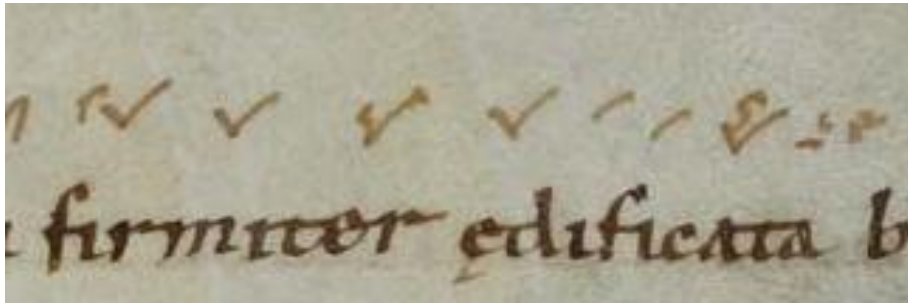 firmiter ędificata b